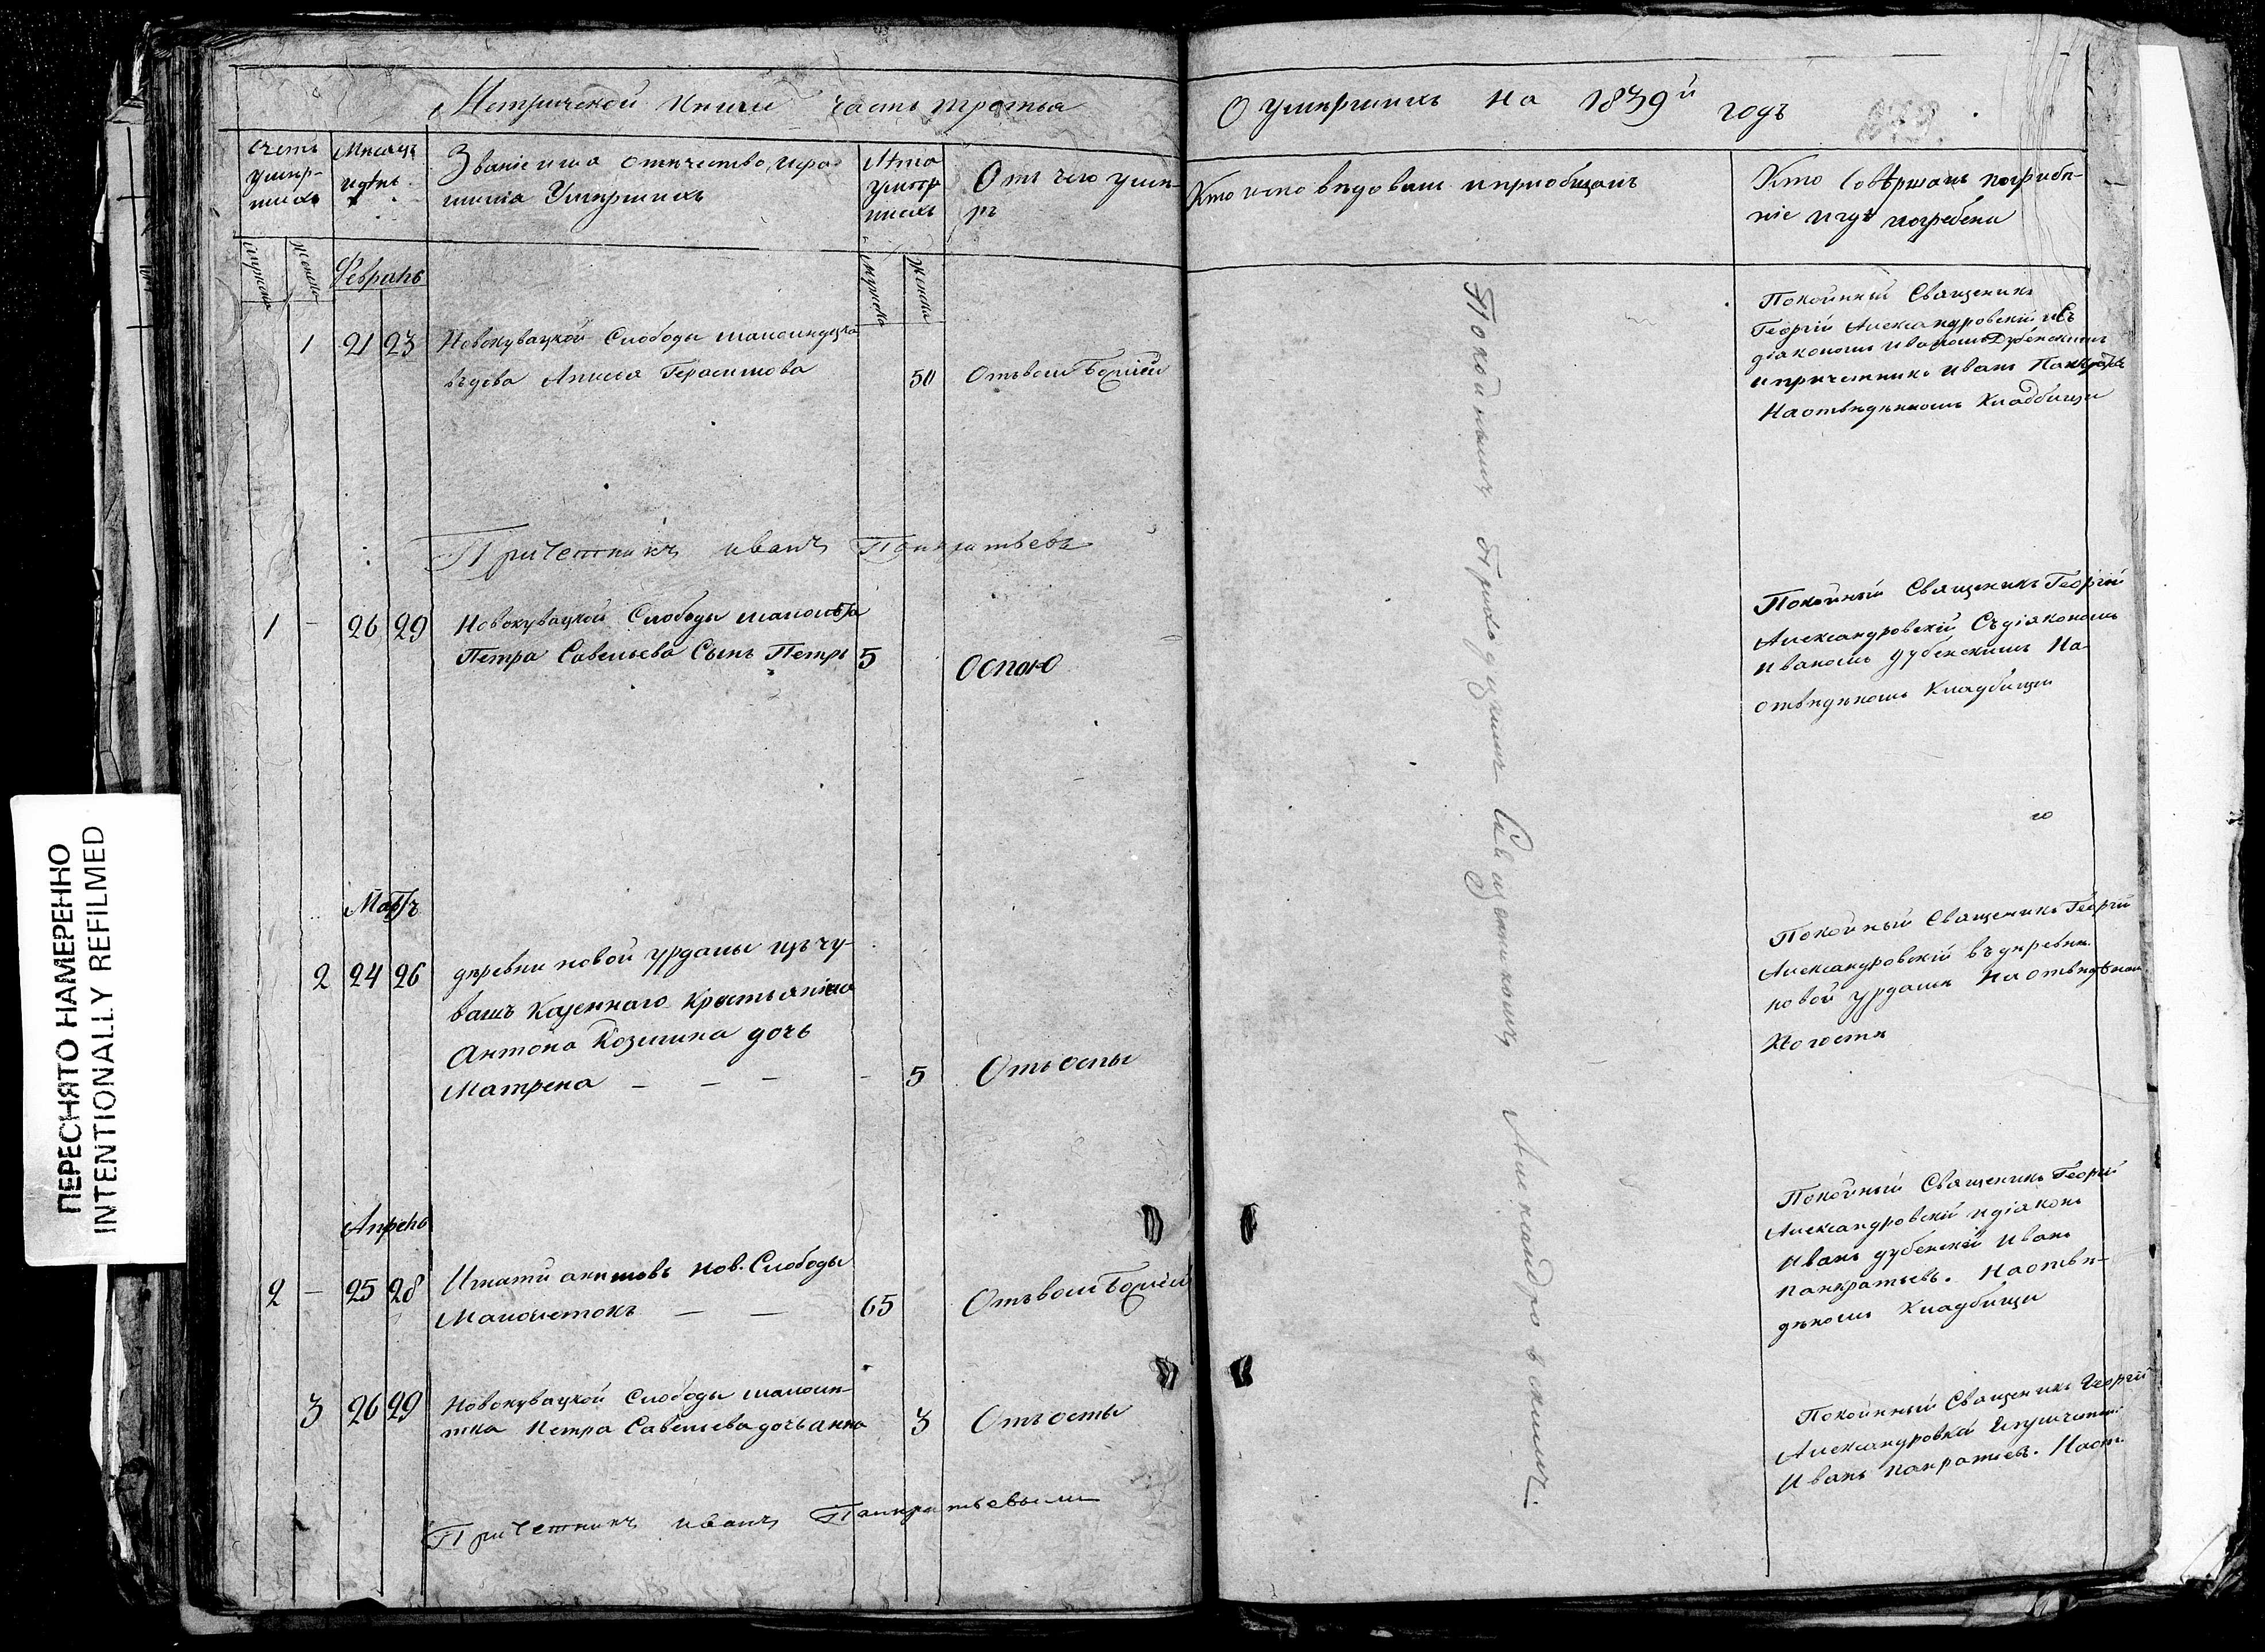 Метрической книги часть третья
О умершихъ на 1839й годъ
счетъ умер-
шихъ
Мѣсяцъ
и день
Званіе имя отечество, и фа-
милія Умершихъ
Лѣта
умер
шихъ
Отъ чего уме-
ръ
Кто исповѣдовалъ и пріобщалъ
Кто Совѣршалъ погребе-
ніе и гдѣ погребены
мужеска
женска
Февраль
мужеска
женска
1 21 23 Новокувацкой Слободы
вѣдова Герасимова 50 Отъ вол Божіей
Покойный Священикъ
Георгій Александровскій исъ
діакономъ Иваномъ Дубенскимъ
и причетникъ Иванъ Панкратьевъ
На отведенномъ Кладбищи
Причетникъ иванъ Панкратьевъ
1 - 26 29 Новокувацкой Слободы
Петра Савельева Сынъ Петръ 5 Оспою
Покойный Священикъ Георгій
Александровскій Съ діакономъ
Иваномъ дубенскимъ На
отведеномъ Кладбищи
Мартъ
2 24 26 деревни новой урдалы изъ чу-
вашъ Казеннаго Крестьянина
Антона Козмина дочь
Матрена — — — - 5 Отъ оспы
Покойный Священикъ Георгій
Александровскій въ деревни
новой урдалы На отведеном
Погостѣ
Апрель
2 - 25 28 Игнатій акимовъ Нов. Слободы
Малолетокъ — — 65 Отъ вол Божіей
Покойный Священикъ Георгій
Александровскій и діаконъ
Иванъ дубенскій Иванъ
панкратьевъ. На отве-
деномъ Кладбищи
3 26 29 Новокувацкой Слободы малоле-
тка Петра Савельева дочь анна 3 Отъ оспы
Покойный Священикъ Георгій
Иванъ панкратьевъ. На от.
Причетникъ иванъ Панкратьевымъ
Покойнымъ Приходцкимъ Священникомъ Александровскимъ.
ПЕРЕСНЯТО НАМЕРЕННО
INTENTIONALLY REFILMED